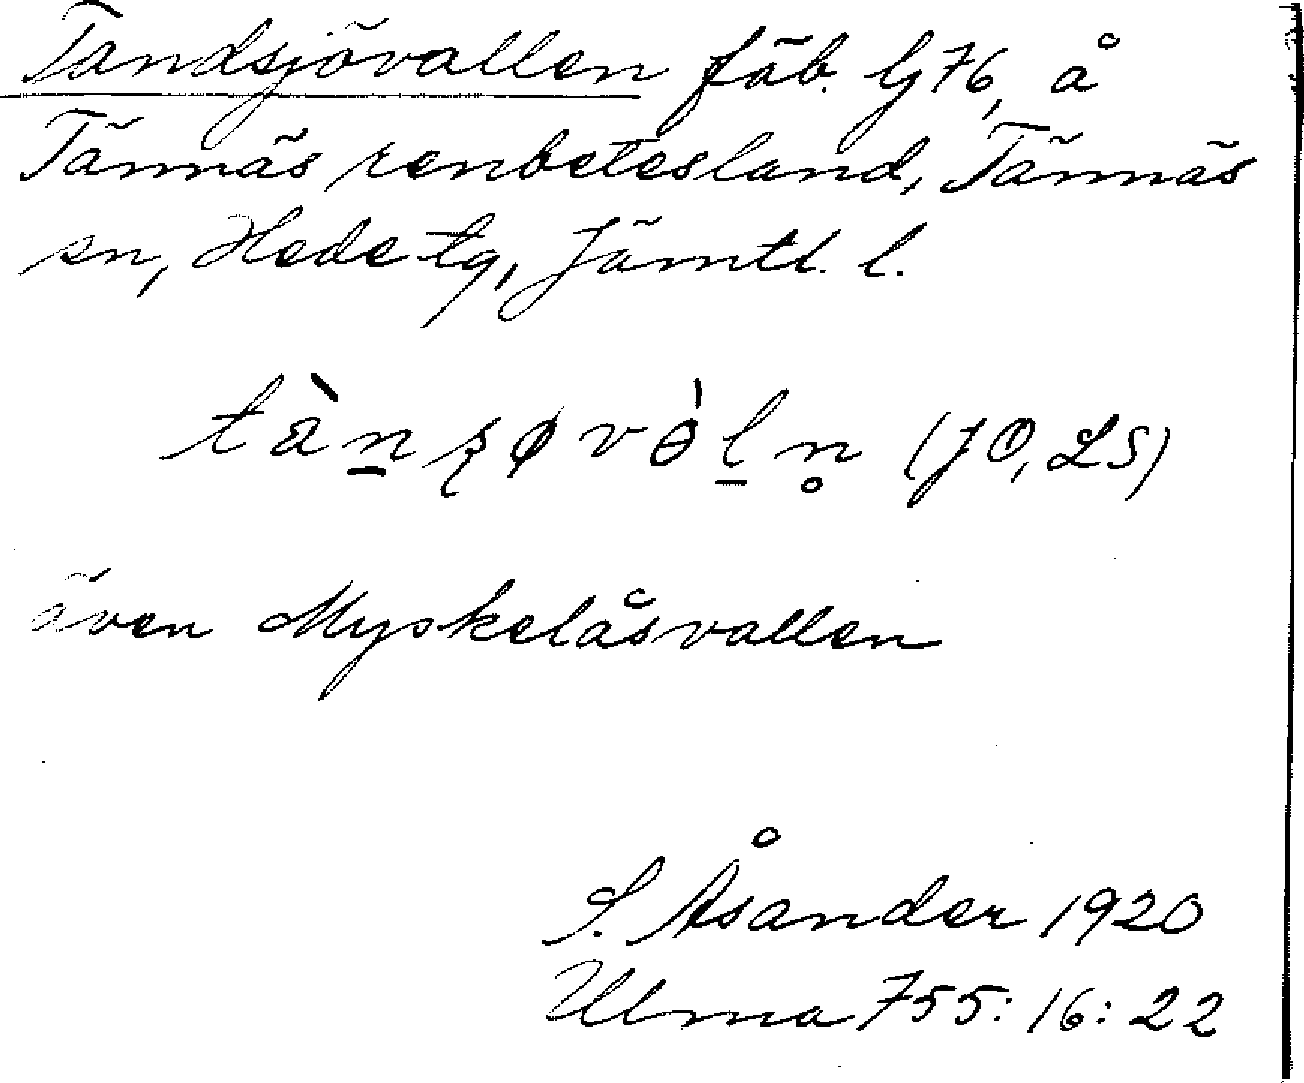 Tandsjövallen fäb. G 76, å
Tännäs renbetesland, Tännäs
sn, Hede tg, Jämtl. l.
tàn̲ʂøvɵ̍l̲n̥ (JO, LS)
även Myskelåsvallen
S. Åsander 1920
Ulma 755:16:22